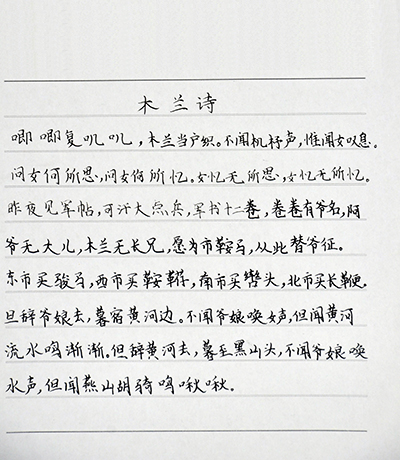 木兰诗
唧唧复叽叽，木兰当户织。不闻机杼声，惟闻女叹息。
问女何所思，问女何所忆。女忆无所思，女忆无所忆。
昨夜见军帖，可汗大点兵，军书十二卷，卷卷有爷名，阿
爷无大儿，木兰无长兄，愿为市鞍马，从此替爷征。
东市买骏马，西市买鞍鞯，南市买辔头，北市买长鞭。
旦辞爷娘去，暮宿黄河边。不闻爷娘唤女声，但闻黄河
流水鸣渐渐。但辞黄河去，暮至黑山头，不闻爷娘唤
水声，但闻燕山胡骑鸣啾啾。